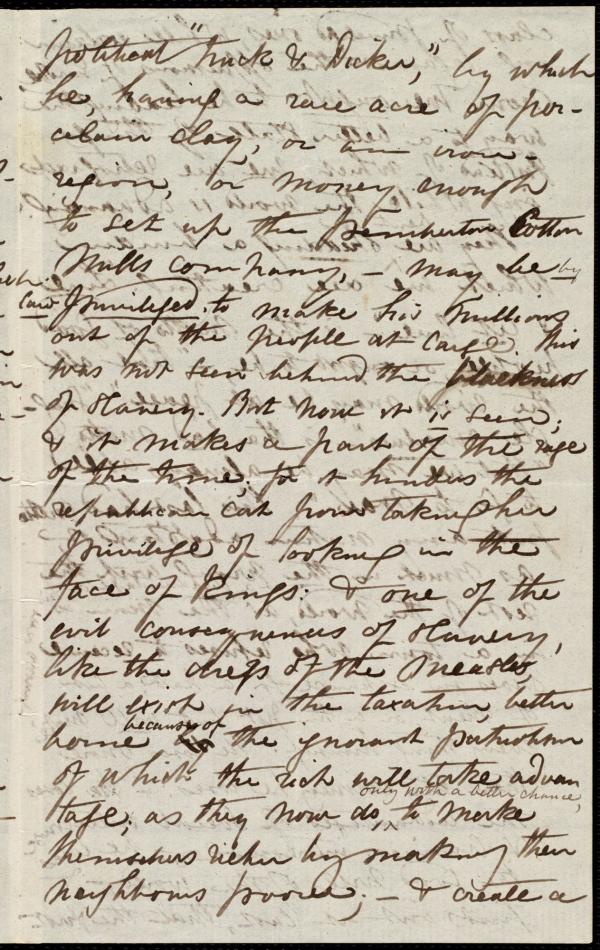 political "truck & Dicker," by which
he, having a rare acre of por-
celain clay, or an iron-
region, or money enough
to set up the Pemberton Cotton
Mills company, - may be by
law privileged, to make his millions
out of the people at large. This
was not seen behind the blackness
of slavery. But now it is seen;
& it makes a part of the rage
of the time; for it hinders the
republican cat from taking her
privilege of looking in the
face of Kings: & one of the
evil consequences of slavery,
like the dregs of the measles,
will exist in the taxation, better
borne because of the ignorant patriotism
of which the rich will take advan
tage, as they now do, only with a better chance, to make
themselves richer by making their
neighbours poorer; - & create a